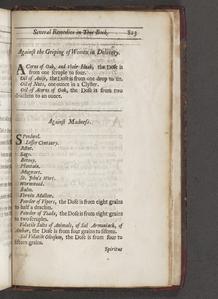 Several Remedies in Book. 823
Against the Griping of Women in Delivery.
ACorns of Oak, and their Husks, the Dose is
from one scruple to four.
Oil of the Dose is from one drop to ten.
Oil of Nuts, one ounce in a Clyster.
Oil of Acorns of Oak, the Dose is from two
drachms to an ounce.
Against Madness.
SPeedwel.
Lesser Centaury.
Sage.
Betony.
Plantain.
Mugwort.
St. John's Wort.
Wormwood.
Balm.
Vervein Mallow.
Powder of Vipers, the Dose is from eight grains
to half a drachm.
Powder of Toads, the Dose is from eight grains
to two scruples.
Volatile Salts of Animals, of Sal Armoniack, of
Amber, the Dose is from four grains to fifteen.
Sal Volatile Oleosum, the Dose is from four to
fifteen grains.
Spiritus